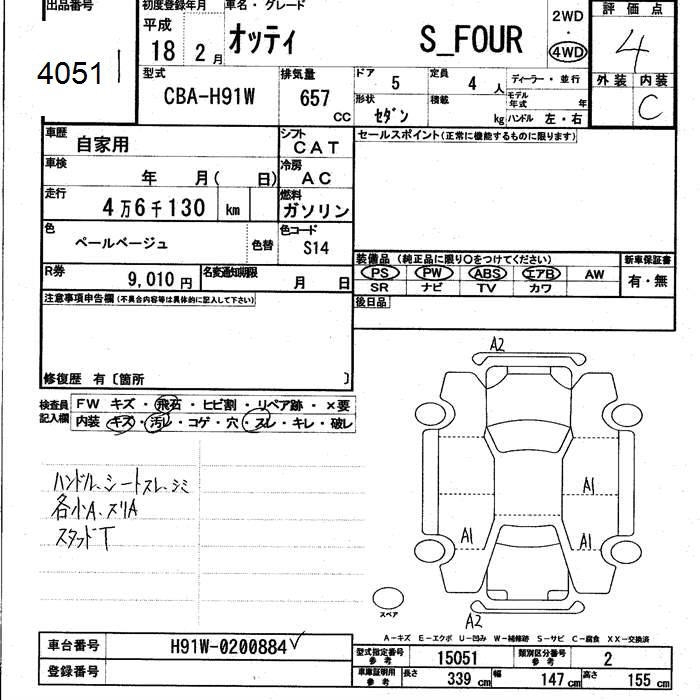 出品番号
4051
初度登録年月
平成
18 2月
車名・グレード
オッティ S_FOUR
2WD
・
4WD
評価点
4
外装 内装
C
型式
CBA-H91W
排気量
657 CC
ドア 5
定員 4 人
形状 セダン
積載 kg
ディーラー・並行
モデル年式 年
ハンドル 左・右
車歴
自家用
シフト
CAT
車検
年 月( 日)
冷房
AC
走行
4万6千130 km
燃料
ガソリン
色
ペールベージュ
色替
色コード
S14
R券
9,010円
名変通知期限
月 日
セールスポイント(正常に機能するものに限ります)
装備品(純正品に限り○をつけてください)
PS PW ABS エアB AW
SR ナビ TV カワ
新車保証書
有・無
後日品
注意事項申告欄(不具合内容等は具体的に記入して下さい)
修復歴 有〔箇所 〕
検査員記入欄
FW キズ・飛石・ヒビ割・リペア跡・×要
内装 キズ・汚レ・コゲ・穴・スレ・キレ・破レ
ハンドル、シートスレ、シミ
各小A、スリA
スタッドT
A2
A1
A1
A1
A2
スペア
A-キズ E-エクボ U-凹み W-補修跡 S-サビ C-腐食 XX-交換済
車台番号
H91W-0200884
登録番号
型式指定番号
参考
15051
類別区分番号
参考
2
車庫証明用
参考
長さ 339 cm
幅 147 cm
高さ 155 cm